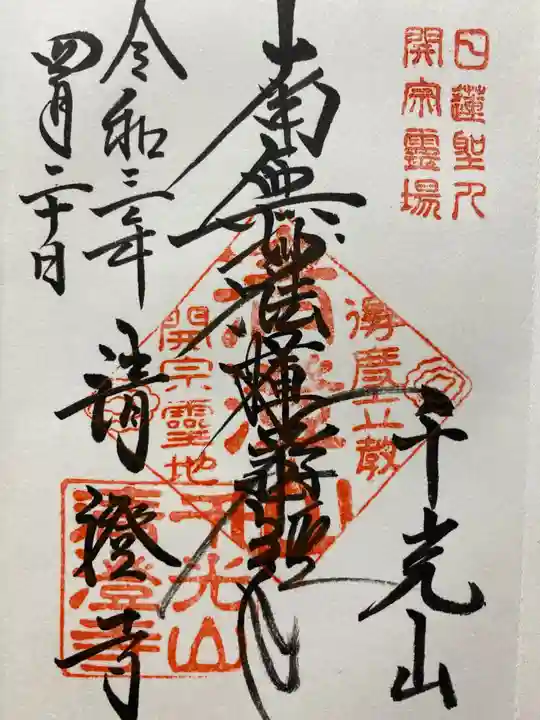 日蓮聖人
開宗霊場
千光山
南無妙法蓮華経
令和三年
四月二十日
清澄寺
得度立教
開宗霊地
千光山
清澄寺